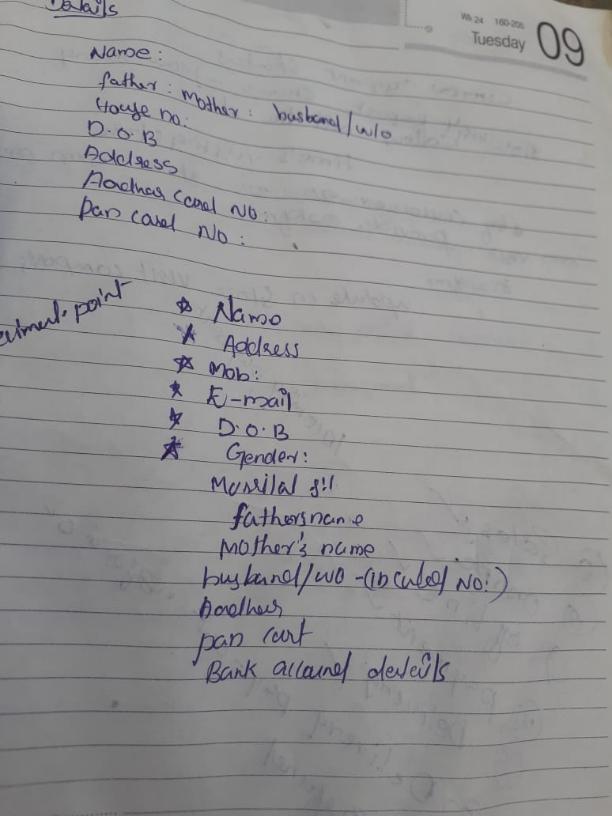 Details
Wk 24 160-205
Tuesday 09
Name:
father: mother: husband/w/o
House no:
D.O.B
Address
Aadhar card No:
pan card No:
point
Name
Address
Mob:
E-mail
D.O.B
Gender:
fathersname
Mother's name
husband/wo No:)
Aadhar
pan
Bank details